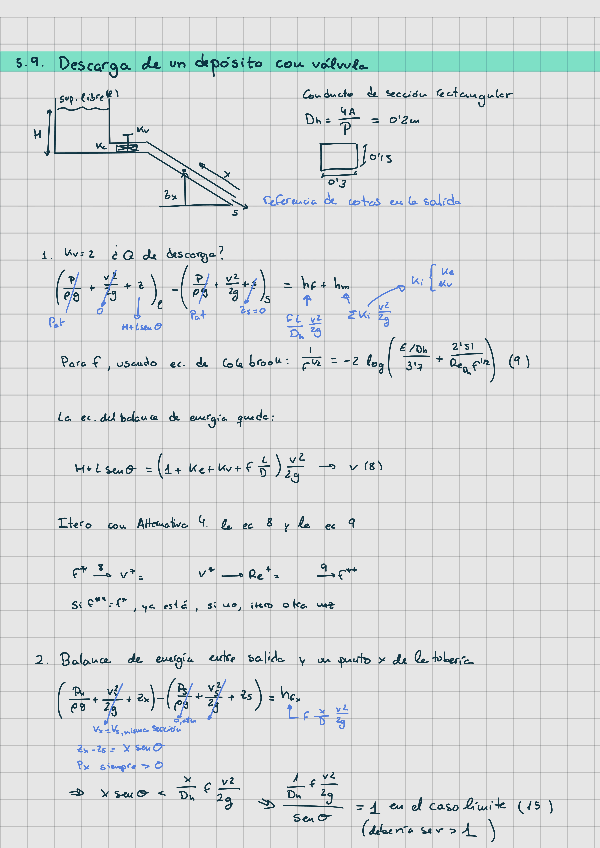 5.9. Descarga de un depósito con válvula
sup. libre (e)
H
Kv
Ke
x
zx
s
Conducto de sección rectangular
Dh = 4A/P = 0'2m
0'15
0'3
Referencia de cotas en la salida
1. Kv=2 ¿Q de descarga?
(P/ρg + v²/2g + z)e - (P/ρg + v²/2g + z)s = hf + hm
Pat 0 H+L senθ Pat zs=0 f L/Dh v²/2g ΣKi v²/2g Ki { Ke Kv
Para f, usando ec. de Colebrook: 1/f^1/2 = -2 log(ε/Dh / 3'7 + 2'51 / ReDh f^1/2) (9)
La ec. del balance de energía queda:
H+L senθ = (1 + Ke + Kv + f L/D) v²/2g → v (8)
Itero con Alternativa 4. la ec 8 y la ec 9
f* 8→ v*= v* → Re*= 9→ f**
Si f**=f*, ya está, si no, itero otra vez
2. Balance de energía entre salida y un punto x de la tubería
(Px/ρg + v²x/2g + zx) - (Ps/ρg + v²s/2g + zs) = hfx
vx=vs, misma sección
f x/D v²/2g
zx-zs = x senθ
Px siempre > 0
⇒ x senθ < x/Dh f v²/2g ⇒ (1/Dh f v²/2g) / senθ = 1 en el caso límite (15)
(debería ser > 1)